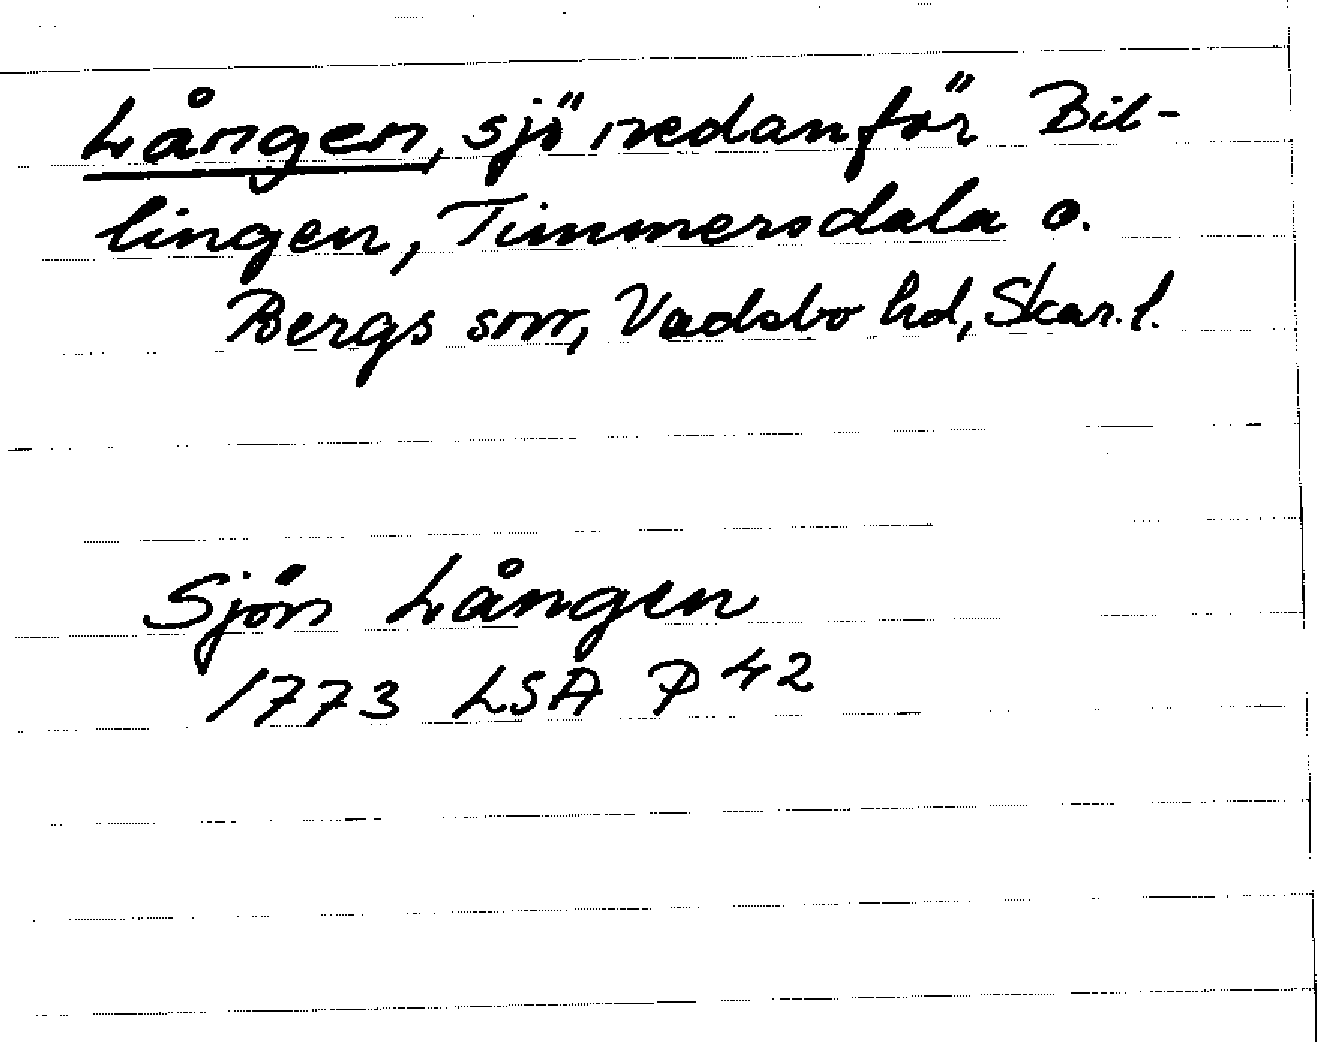 Lången, sjö nedanför Bil-
lingen, Timmersdala o.
Bergs snr, Vadsbo hd, Skar. l.
Sjön Lången
1773 LSA P 42